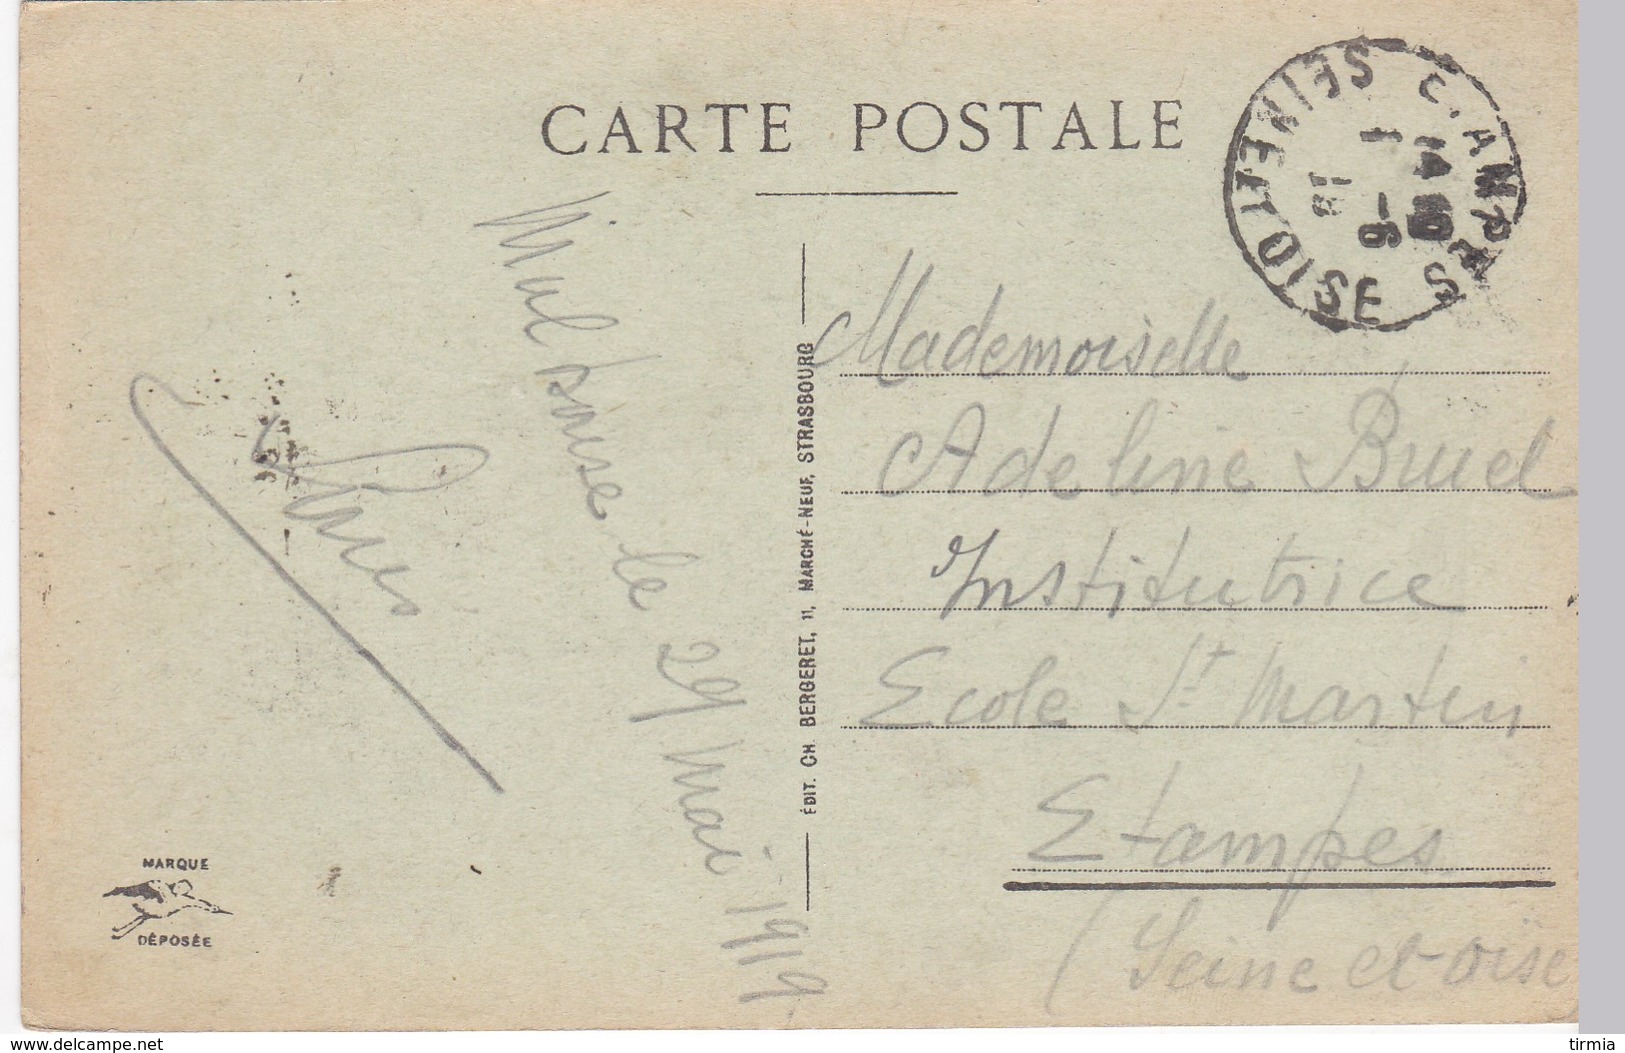 CARTE POSTALE
ETAMPES
SEINE ET OISE
1 - 6
19
Mulhouse le 29 mai 1919
ÉDIT. CH. BERGERET, 11, MARCHÉ-NEUF, STRASBOURG
Mademoiselle
Adeline Bruel
Institutrice
Ecole St Martin
Etampes
(Seine et oise
MARQUE
DÉPOSÉE
www.delcampe.net
tirmia